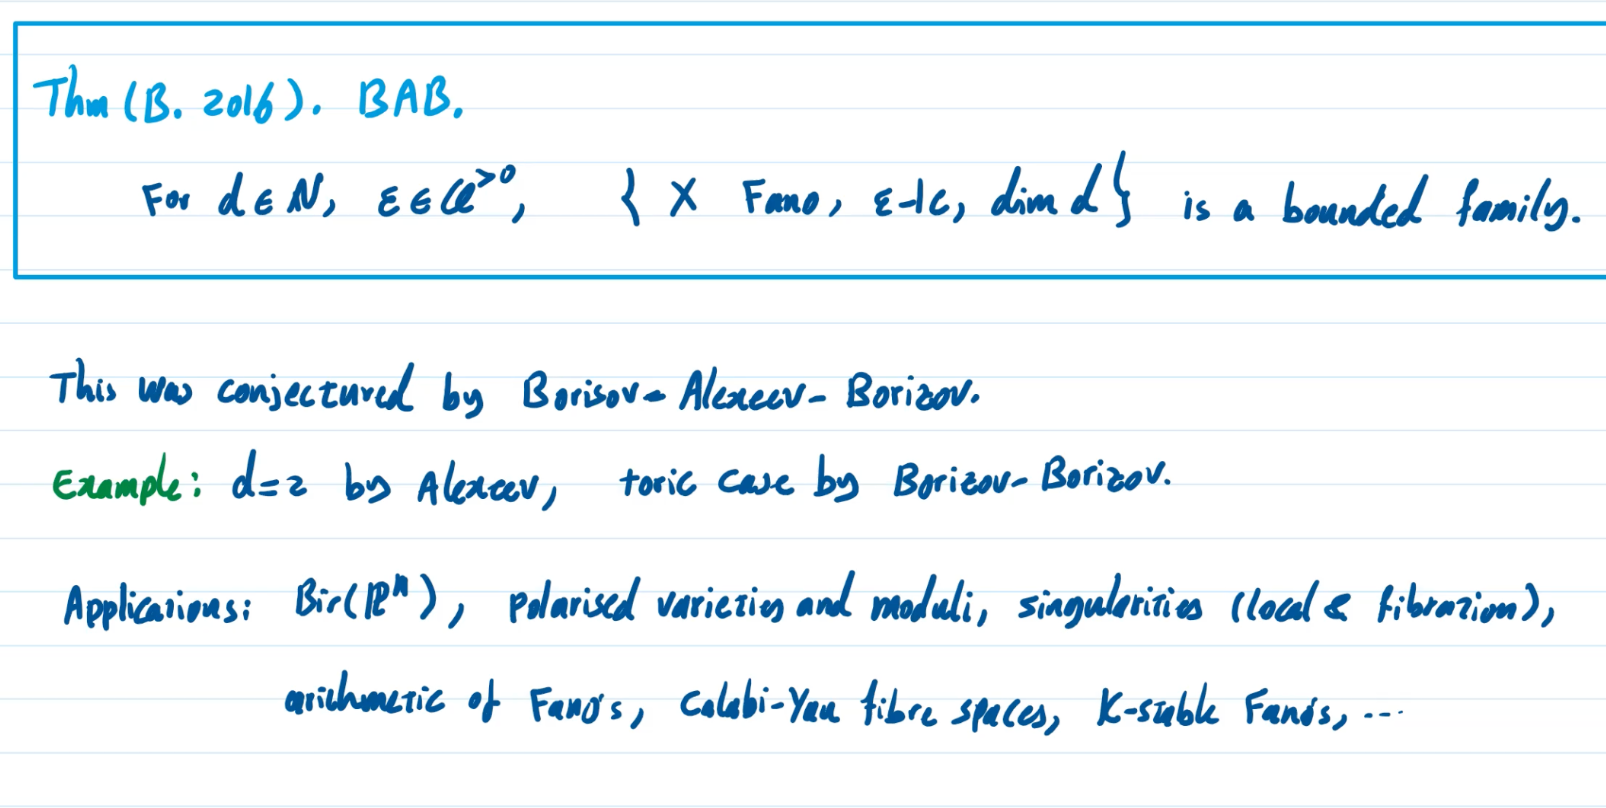 Thm (B. 2016). BAB.
For d ∈ ℕ, ε ∈ ℚ^{>0}, { X Fano, ε-lc, dim d } is a bounded family.
This was conjectured by Borisov-Alexeev-Borizov.
Example: d=2 by Alexeev, toric case by Borizov-Borizov.
Applications: Bir(ℙⁿ), polarised varieties and moduli, singularities (local & fibration),
arithmetic of Fano's, Calabi-Yau fibre spaces, K-stable Fano's, ...